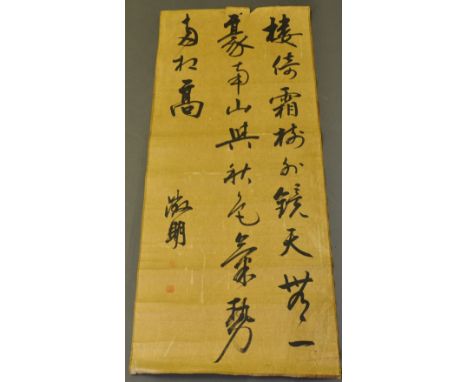 樓倚霜樹外鏡天無一
豪南山與秋色氣勢
兩相高
徵明